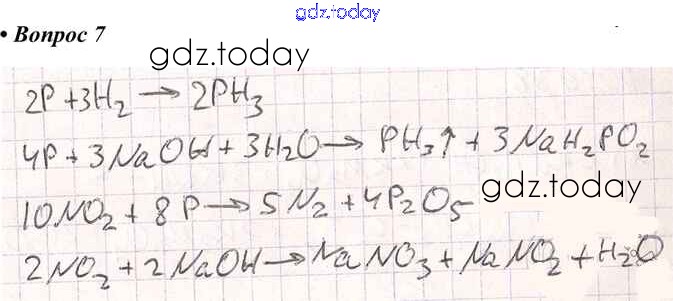 gdz.today
• Вопрос 7
gdz.today
2P + 3H₂ → 2PH₃
4P + 3NaOH + 3H₂O → PH₃↑ + 3NaH₂PO₂
gdz.today
10NO₂ + 8P → 5N₂ + 4P₂O₅
2NO₂ + 2NaOH → NaNO₃ + NaNO₂ + H₂O